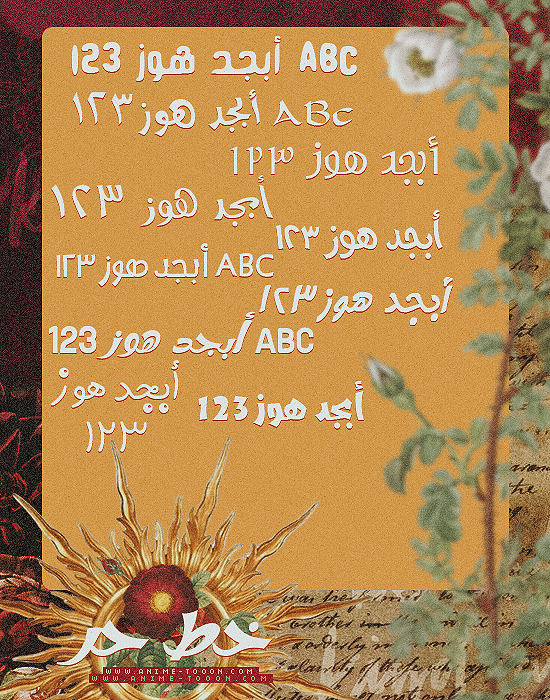 123 أبجد هوز ABC
١٢٣ أبجد هوز ABC
أبجد هوز ١٢٣
أبجد هوز ١٢٣
أبجد هوز ١٢٣
أبجد هوز ١٢٣ ABC
أبجد هوز ١٢٣
123 أبجد هوز ABC
أبجد هوز
١٢٣
أبجد هوز 123
خط حر
WWW.ANIME-TOOON.COM
WWW.ANIME-TOOON.COM